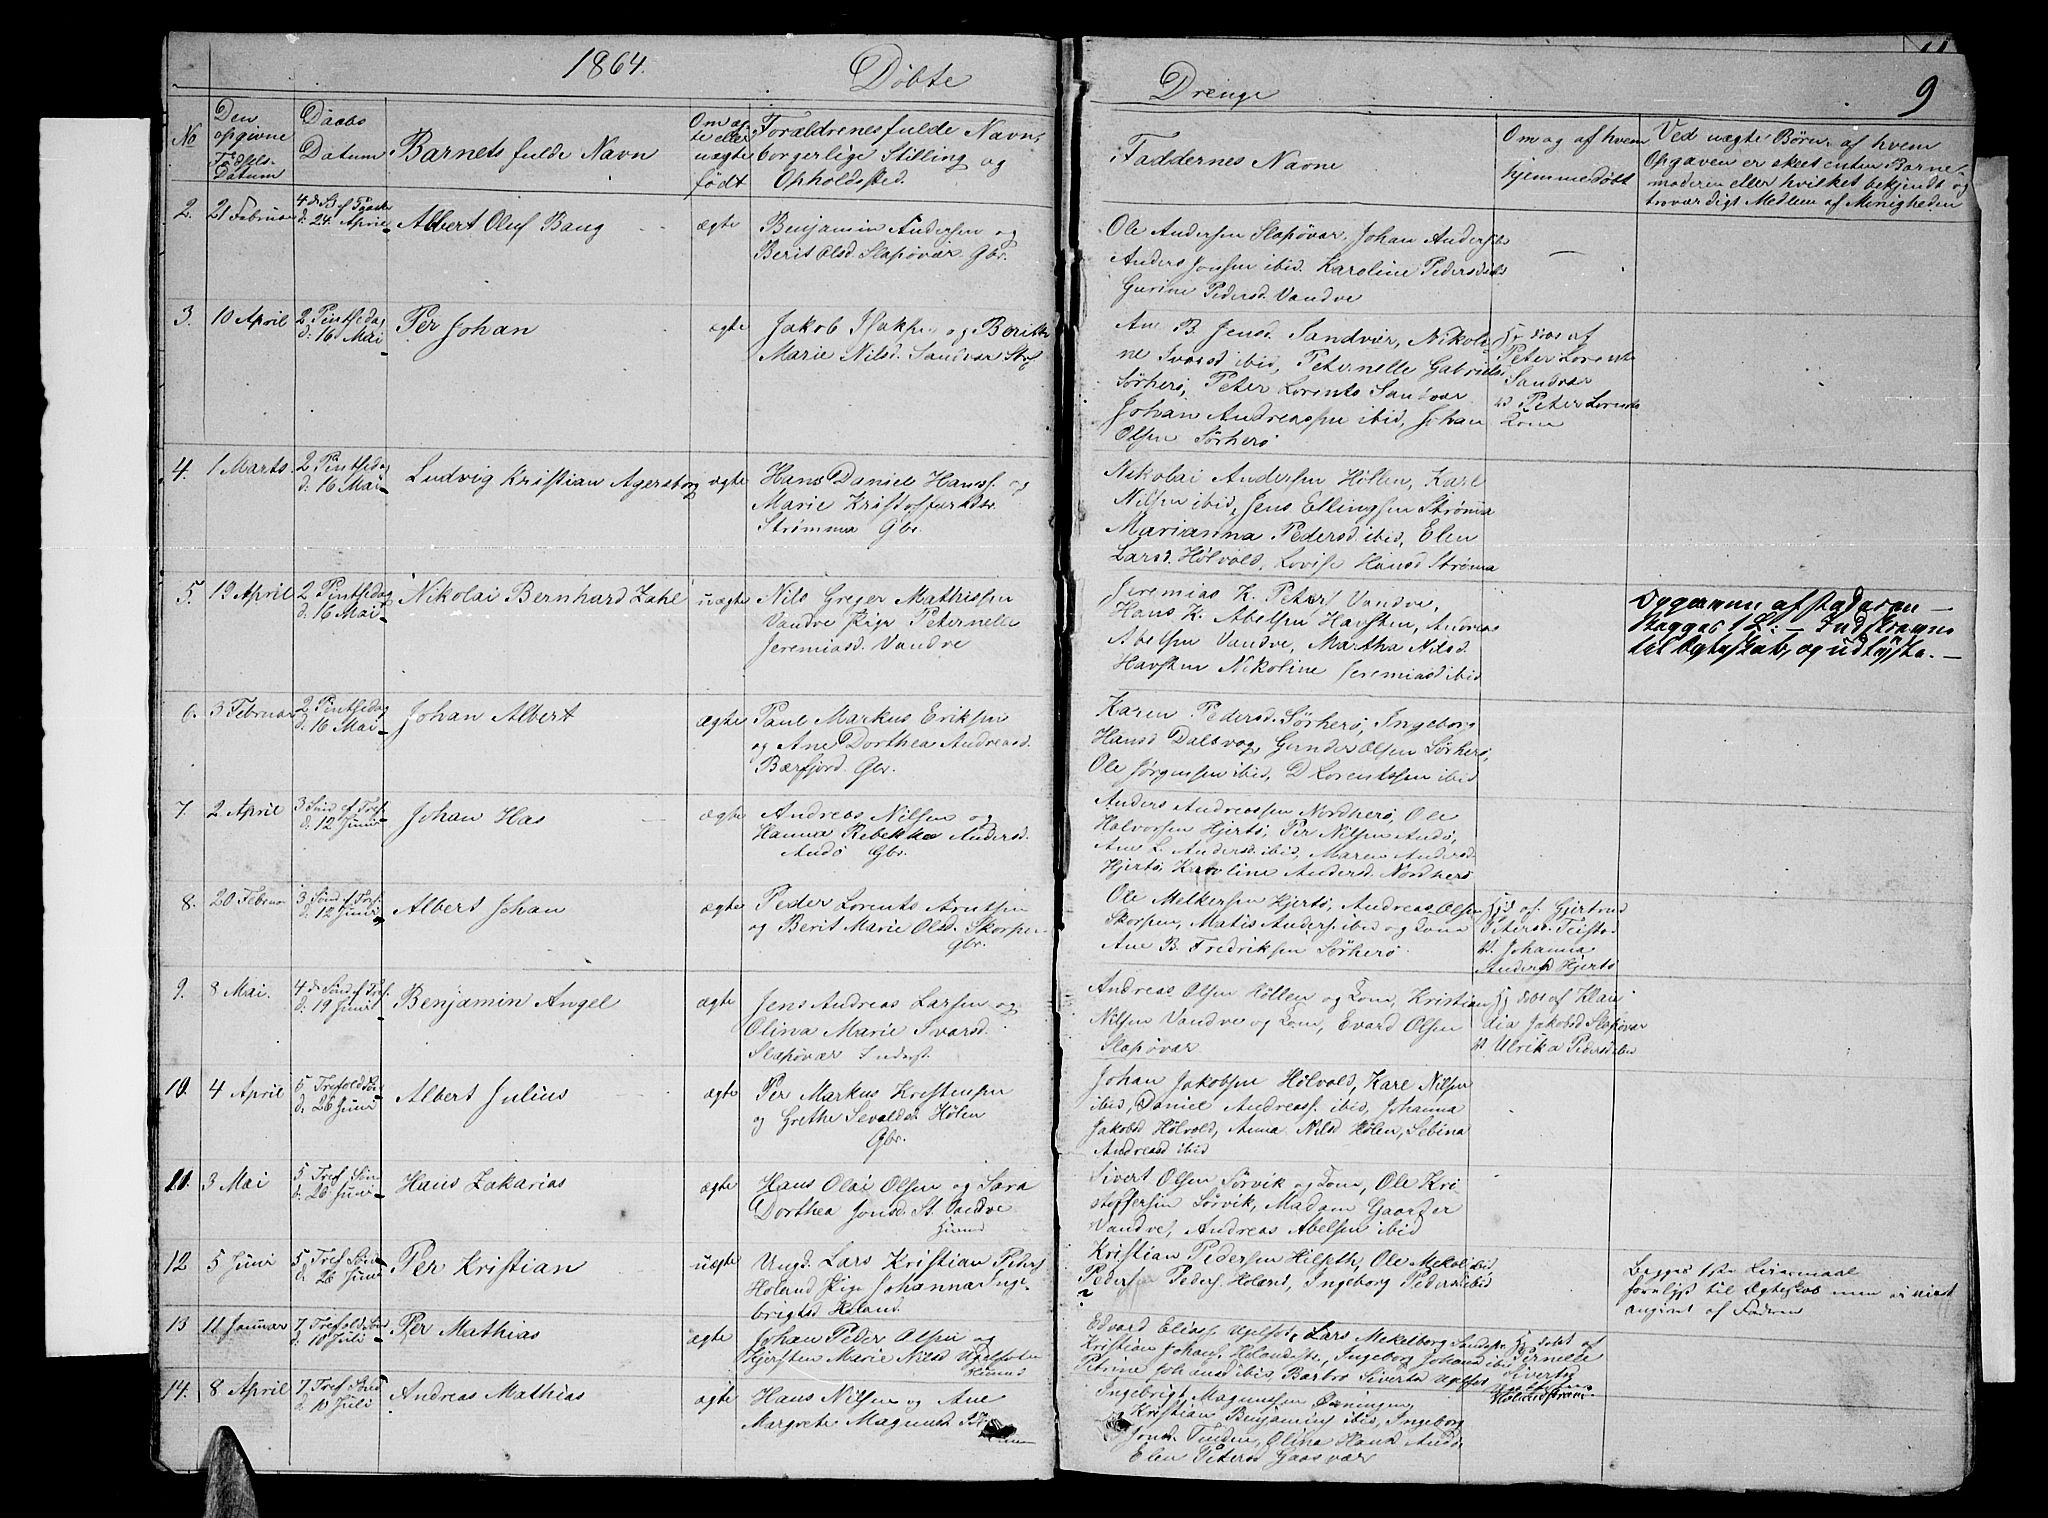 1864.
Døbte
Drenge
9
No
Den opgivne Fødsels-Datum
Daabs Datum
Barnets fulde Navn
Om ægte eller uægte født
Forældrenes fulde Navn, borgerlige Stilling og Opholdssted.
Faddernes Navne
Om og af hvem hjemmedøbt
Ved uægte Børn, af hvem Opgaven er skeet enten Barnemoderen eller hvilket bekjendt og troværdigt Medlem af Menigheden
2.
21 Februar
d. 24 April
Albert Oluf Bang
ægte
Benjamin Andersen og
Berit Olsd. Slapøvær Gbr.
Ole Andersen Slapøvær, Johan Anders
Anders Jonsen ibid. Karoline Pedersd ibid
Gurine Pedersd. Vandve
3.
10 April
2 Pintsedag
d. 16 Mai
Per Johan
ægte
Jakob og Berith
Marie Nilsd. Sandvær
Ane B. Jensd. Sandvær, Nikoli-
ne Ivarsd ibid, Peternelle Gabrielsd
Sørherø, Peter Lorents Sandvær
Johan Andreassen ibid, Johan
Olsen Sørherø
Hj døbt af
Peter Lorents
Sandvær
Peter Lorents
Kone
4.
1 Marts.
2 Pintsedag
d. 16 Mai
Ludvig Kristian Agersborg
ægte
Hans Daniel Hanss. og
Marie
Strømma Gbr.
Nikolai Andersen Høllen, Karl
Nilsen ibid, Jens Ellingsen Strøma
Marianna Pedersd ibid, Elen
Larsd. Hølvold, Lovise Hansd Strøma
5.
19 April
2 Pintsedag
d. 16 Mai
Nikolai Bernhard Zahl
uægte
Nils Greger Mathissen
Vandve Pige Peternelle
Jeremiasd. Vandve
Jeremias K. Peters Vandve,
Hans K. Abelsen Havsten, Andreas
Abelsen Vandve, Martha Nilsd.
Havsten Nikoline Jeremiasd ibid
Opgaven af Faderen —
Begges 1 L: —
til Ægteskab, og udlyste. —
6.
3 Februar
2 Pintsedag
d. 16 Mai
Johan Albert
ægte
Paul Markus Eriksen
og Ane Dorthea Andreasd.
Bærfjord. Gbr.
Karen Pedersd. Sørherø, Ingeborg
Hansd Dalsvog, Gunder Olsen Sørherø,
Ole Jørgensen ibid, D Lorentssen ibid
7.
2 April
3 Sønd ef Tref.
d. 12 Juni
Johan Has
ægte
Andreas Nilsen og
Hanna Rebekka Andersd.
Andø Gbr.
Anders Andreassen Nordherø, Ole
Halvorsen Hjertø, Per Nilsen Andø,
Ane L. Andersd. ibid, Maren Andersd.
Hjertø, Karoline Andersd. Nordherø
8.
20 Februar
3 Sønd ef Tref.
d. 12 Juni
Albert Johan
ægte
Peder Lorents Arntsen
og Berit Marie Olsd. Skorpen
Gbr.
Ole Melkersen Hjertø, Andreas Olsen
Skorpen, Matis Anders. ibid og Kone
Ane B. Fredriksen Sørherø
Hj af Gjertrud
Petersd.
Johanna
Andersd Hjertø
9.
8 Mai.
4 d. Sønd ef Tref.
d. 19 Juni
Benjamin Angel
ægte
Jens Andreas Larsen og
Olina Marie Ivarsd.
Slapøvær Inderst.
Andreas Olsen Høllen og Kone, Kristian
Nilsen Vandve og Kone, Evard Olsen
Slapøvær
Hj døbt af Klau
dia Jakobsd Slapøvær
Ulrika Pedersd ibid
10.
4 April
5 Trefold Sønd
d. 26 Juni
Albert Julius
ægte
Per Markus Kristensen
og Grethe Sevaldsd. Hølen
Gbr.
Johan Jakobsen Hølvold, Karl Nilsen
ibid, Daniel Andreass. ibid, Johanna
Jakobsd Hølvold, Anna Nilsd Hølen, Sebina
Andreasd ibid
11.
3 Mai
5 Tref Sønd
d. 26 Juni
Hans Zakarias
ægte
Hans Olai Olsen og Sara
Dorthea Jonsd. St. Vandve
Sivert Olsen Sørvik og Kone, Ole Kri
stoffersen Sørvik, Madam Gaarder
Vandve, Andreas Abelsen ibid
12
5 Juni
5 Tref Sønd
d. 26 Juni
Per Kristian
uægte
Ungd. Lars Kristian Peders
Høland Pige Johanna Inge-
brigtsd Høland.
Kristian Pedersen Hilseth, Ole
Pedersen Peders Høland, Ingeborg Pedersd ibid
?
Begges 1ste Leiermaal
forulyst til Ægteskab men
angivet af Faderen
13
11 Januar
7 Trefold Sønd
d. 10 Juli
Per Mathias
ægte
Johan Peder Olsen og
Kjersten Marie Nilsd
Edvard Eliass Lars Mekelborg
Kristian Johans. Ingeborg Johansd ibid
Petrine Johansd ibid, Barbro Sivertsd
Hj døbt af
Pernelle
Sivertsd
14.
8 April
7 Tref Sønd
d. 10 Juli
Andreas Mathias
ægte
Hans Nilsen og Ane
Margrete Magnusd
Ingebrigt Magnussen
Kristian Benjamins ibid, Ingeborg
Jonsd. Olina Hansd Andø,
Elen Petersd Gaasvær